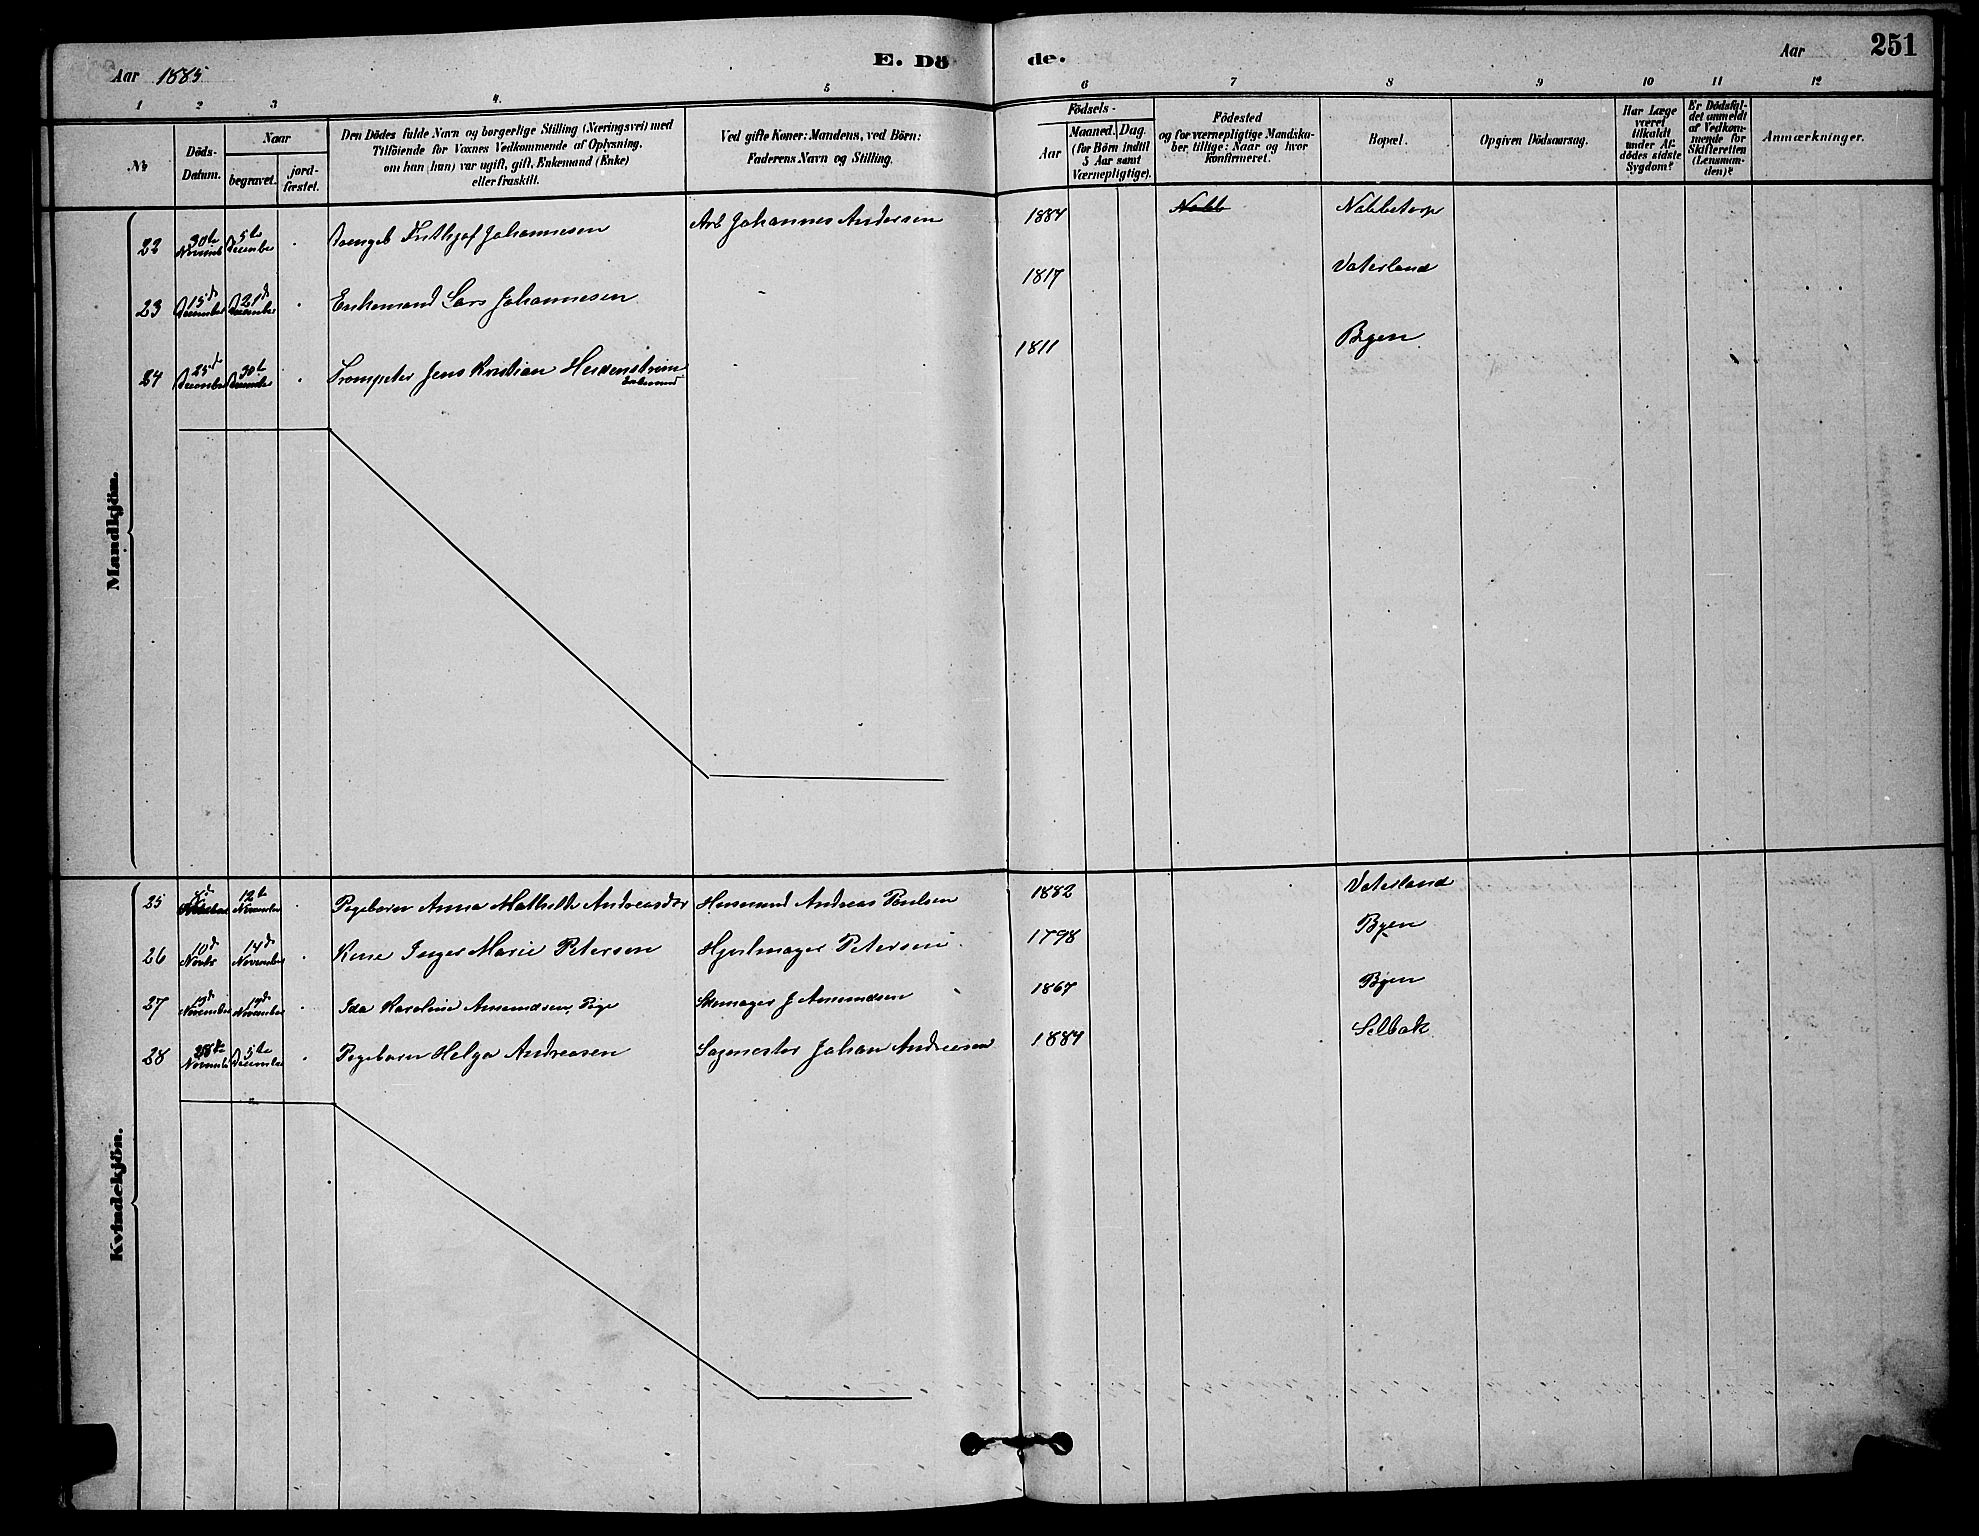 Aar 1885
E. Dö
de.
Aar
251
1 2 3 4. 5
6 7 8 9 10 11 12
No
Döds-
Datum.
Naar
begravet.
jord-
fæstet.
Den Dödes fulde Navn og borgerlige Stilling (Næringsvei) med
Tilföiende for Voxnes Vedkommende af Oplysning,
om han (hun) var ugift, gift, Enkemand (Enke)
eller fraskilt.
Ved gifte Koner: Mandens, ved Börn:
Faderens Navn og Stilling.
Födsels-
Aar
Maaned. Dag.
(for Börn indtil
5 Aar samt
Værnepligtige).
Födested
og for værnepligtige Mandska-
ber tillige: Naar og hvor
Konfirmeret.
Bopæl.
Opgiven Dödsaarsag.
Har Læge
været
tilkaldt
under Af-
dödes sidste
Sygdom?
Er Dödsfal-
det anmeldt
af Vedkom-
mende for
Skifteretten
(Lensman-
den)?
Anmærkninger.
Mandkjön.
22 30te Novemb 5te December Frithjof Johannesen Arb Johannes Andersen 1884 Nabb Nabbetorp
23 15de December 21de December Enkemand Lars Johannesen 1817 Vaterland
24 25de December 30te December Trompeter Jens Kristian Heidenstrøm 1811 Byen
Enkemand
Kvindekjön.
25 12te November Pigebarn Anna Mathilde Andreasdtr Huusmand Andreas Poulsen 1882 Vaterland
26 10de Novbr 14de November Kone Inger Marie Petersen Hjulmager Petersen 1798 Byen
27 13de November 19de November Ida Karoline Amundsen, Pige Skomager J Amundsen 1867 Byen
28 28de November 5te December Pigebarn Helga Andreasen Sagmester Johan Andreasen 1884 Selbak